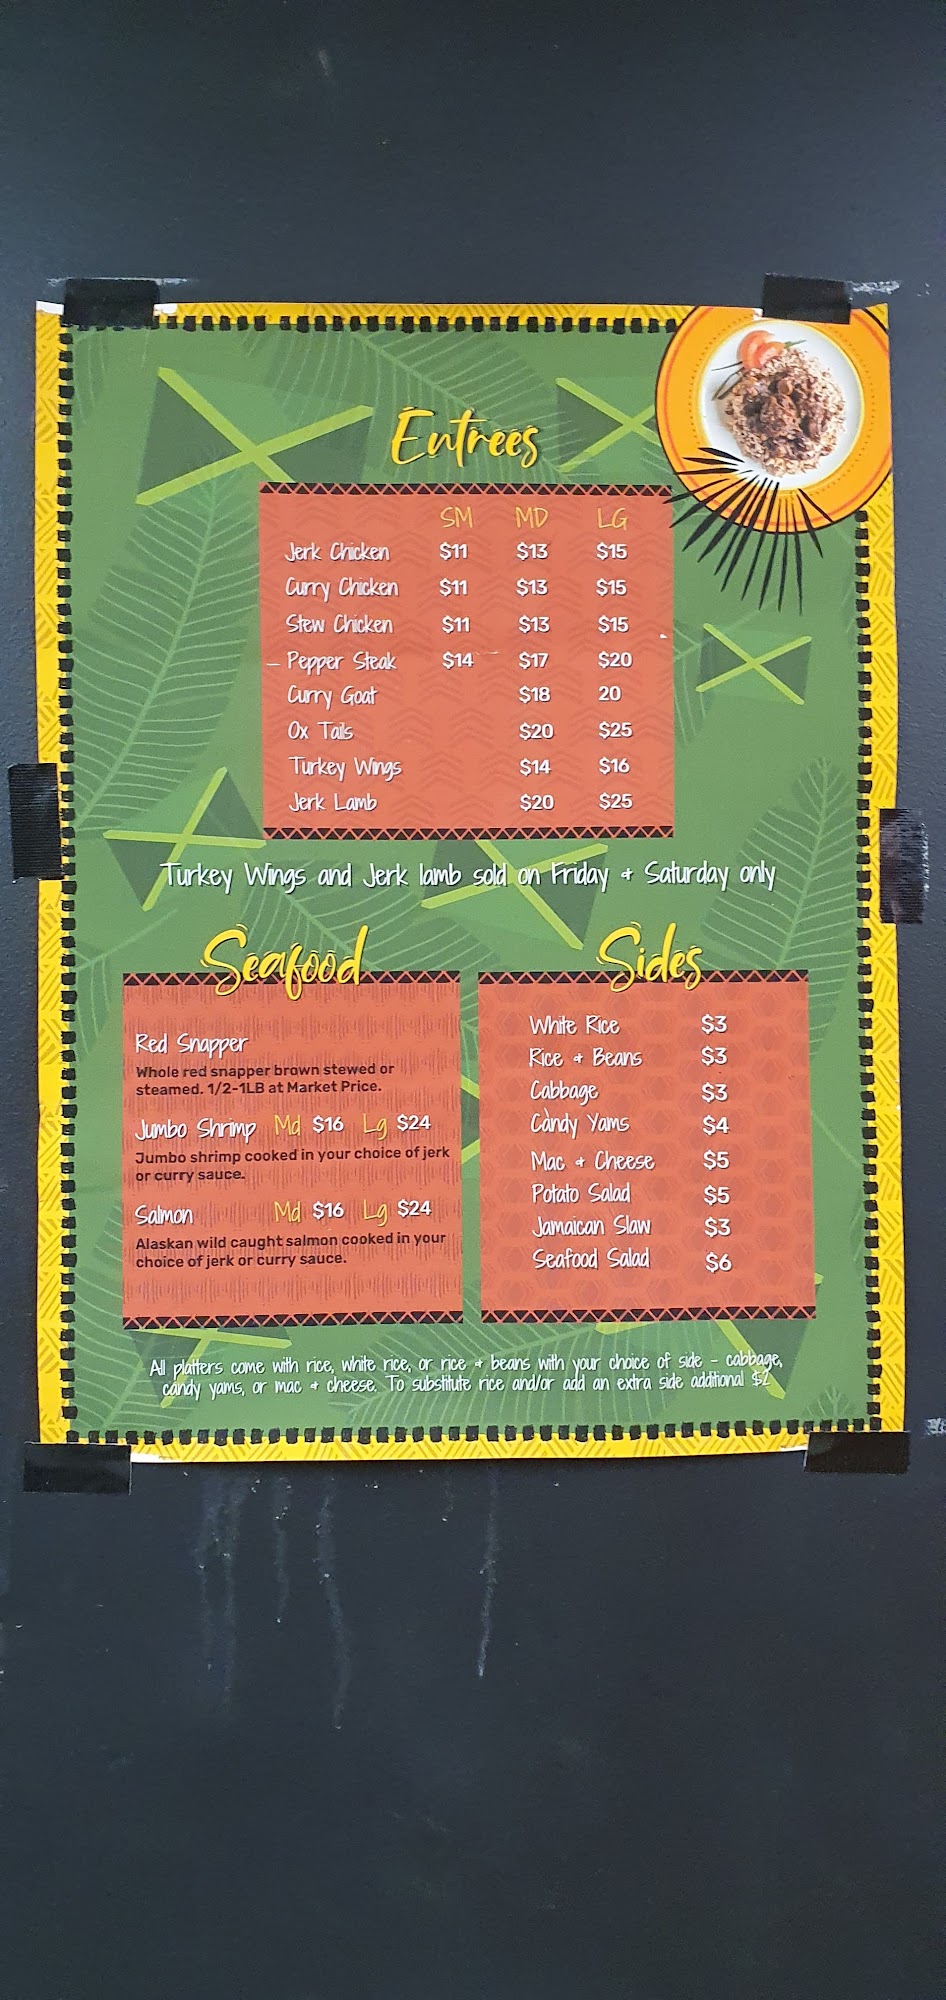 Entrees
SM MD LG
Jerk Chicken $11 $13 $15
Curry Chicken $11 $13 $15
Stew Chicken $11 $13 $15
Pepper Steak $14 $17 $20
Curry Goat $18 20
Ox Tails $20 $25
Turkey Wings $14 $16
Jerk Lamb $20 $25
Turkey Wings and Jerk lamb sold on Friday & Saturday only
Seafood
Red Snapper
Whole red snapper brown stewed or
steamed. 1/2-1LB at Market Price.
Jumbo Shrimp Md $16 Lg $24
Jumbo shrimp cooked in your choice of jerk
or curry sauce.
Salmon Md $16 Lg $24
Alaskan wild caught salmon cooked in your
choice of jerk or curry sauce.
Sides
White Rice $3
Rice & Beans $3
Cabbage $3
Candy Yams $4
Mac & Cheese $5
Potato Salad $5
Jamaican Slaw $3
Seafood Salad $6
All platters come with rice, white rice, or rice & beans with your choice of side - cabbage,
candy yams, or mac & cheese. To substitute rice and/or add an extra side additional $2